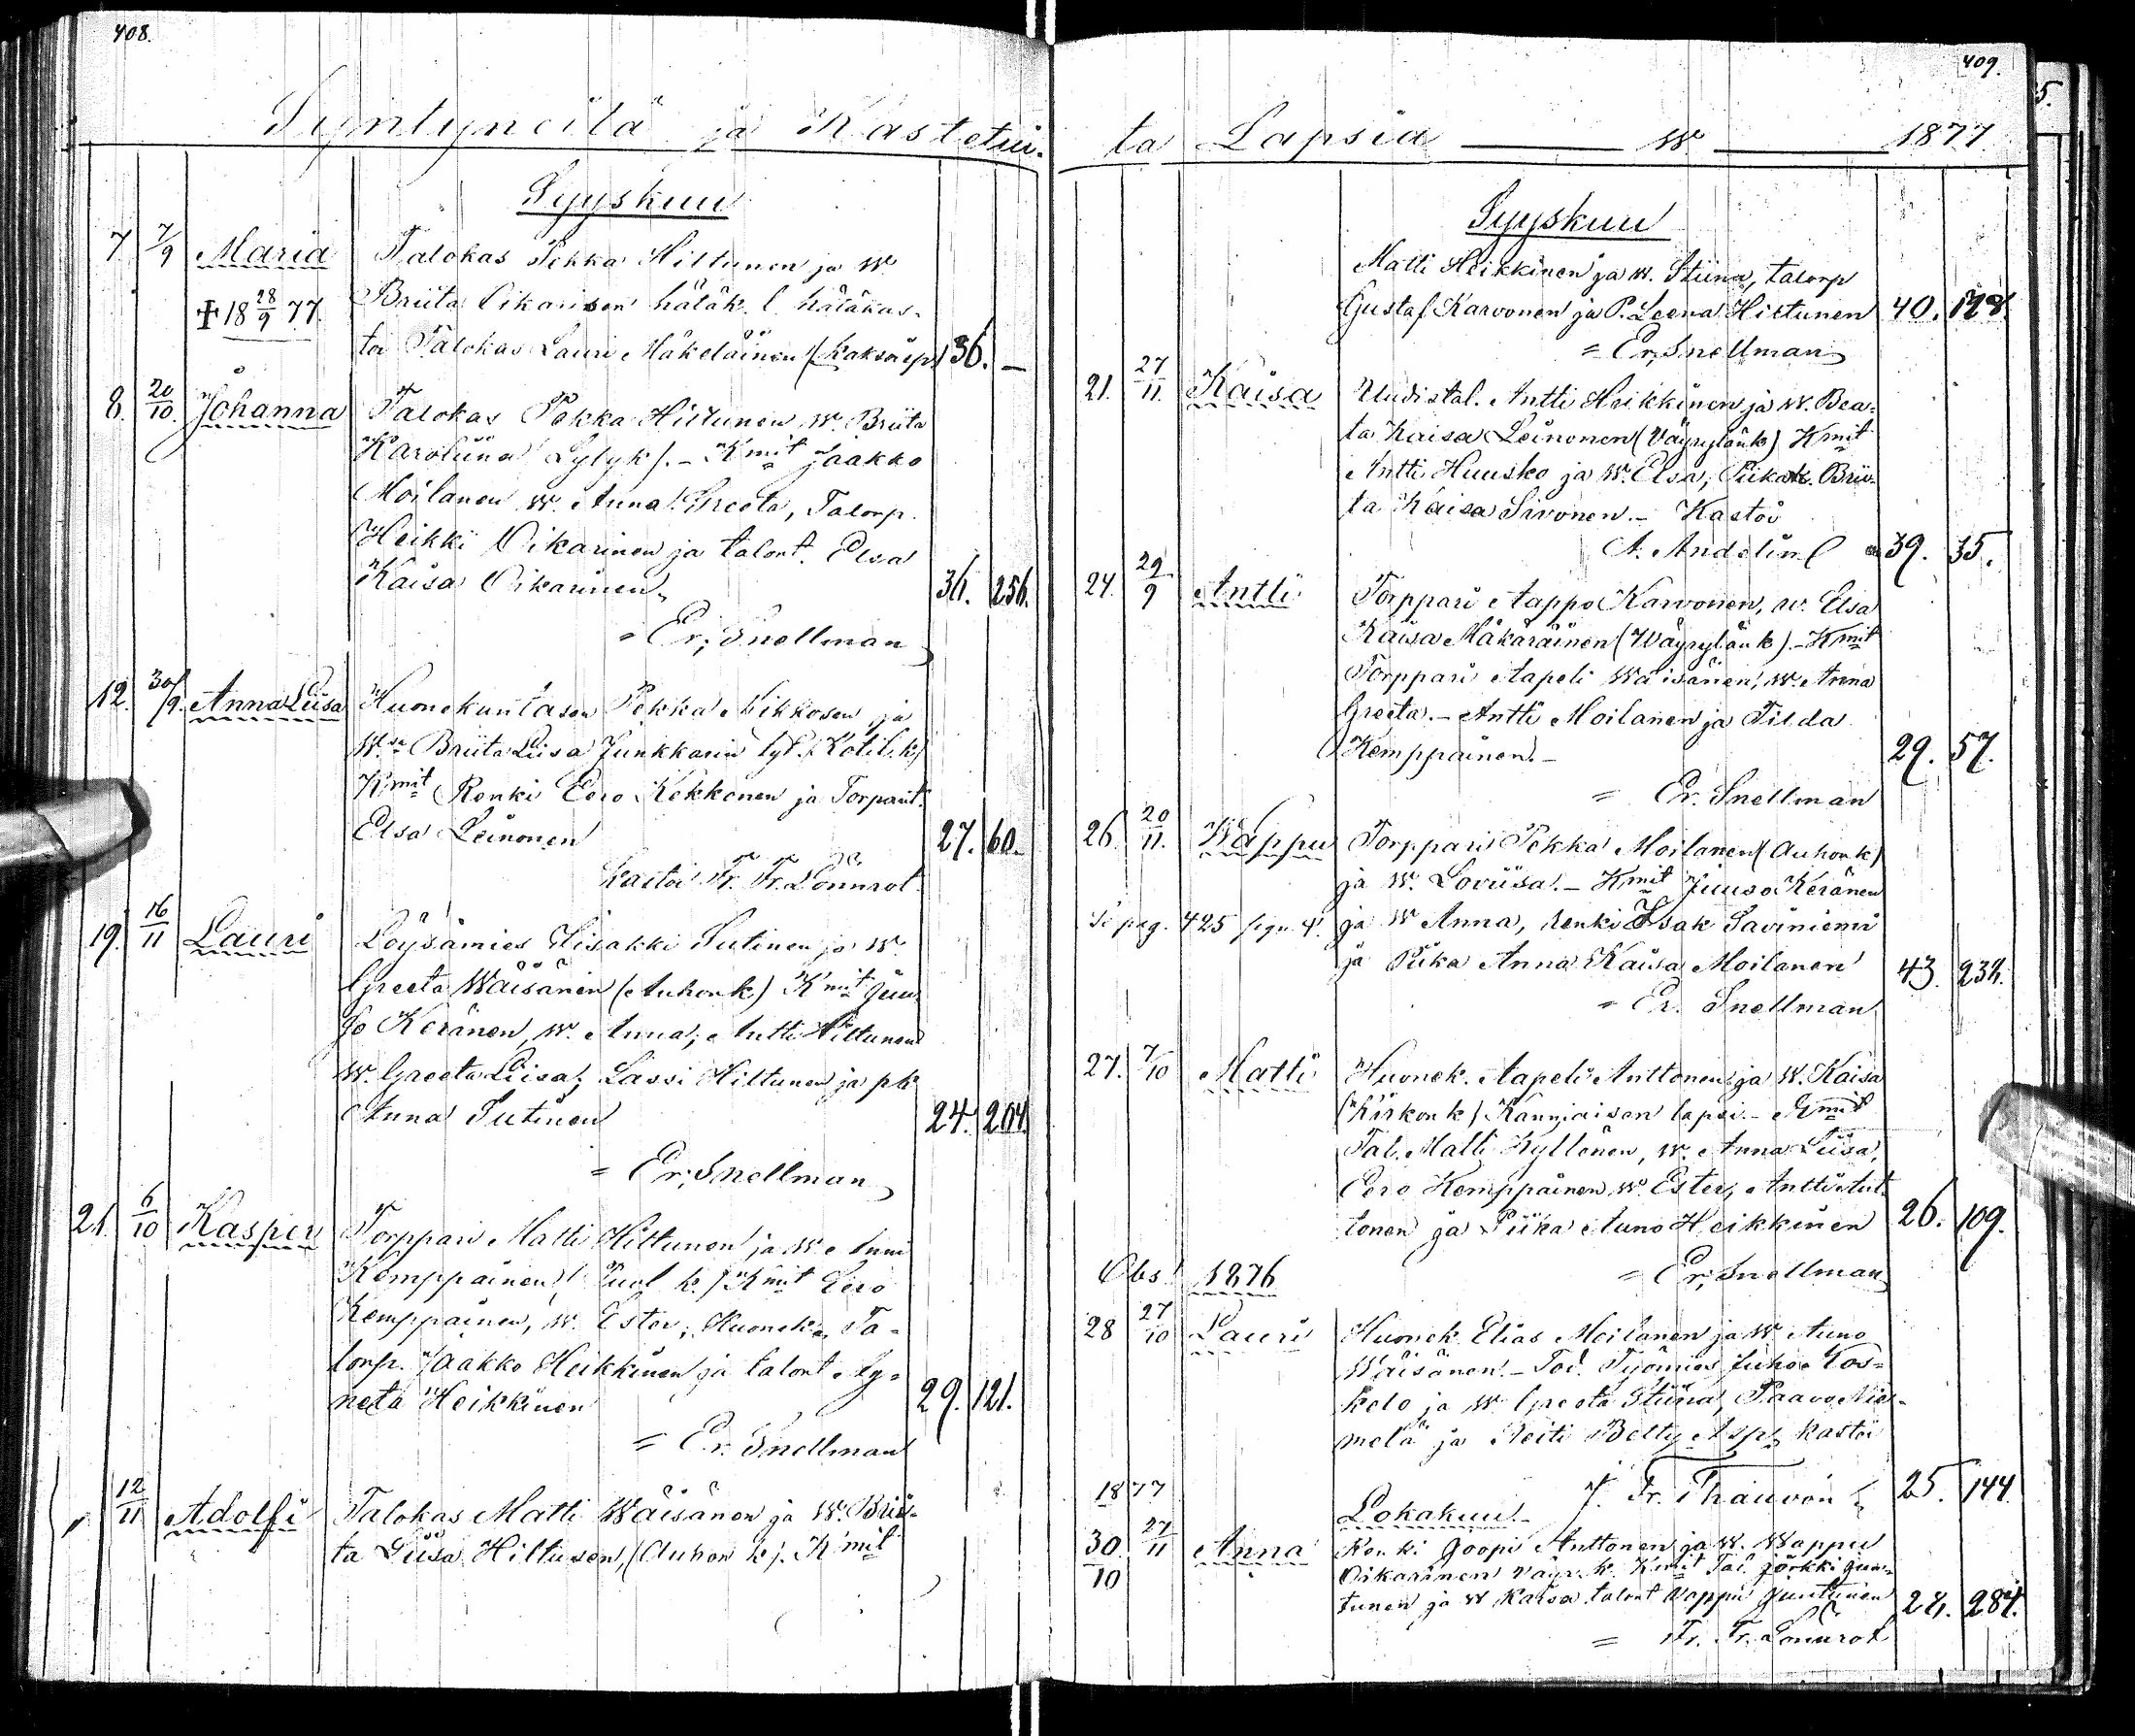 408.
Syntyneitä ja Kastetui-
Syyskuu
7 7/9 Maria Talokas Pekka Hiltunen ja W
+ 18 28/9 77. Briita Oikarisen hätäk. l. hätäkas-
ta Talokas Lauri Mäkeläinen (kaksoisp) 36. —
8. 20/10. Johanna Talokas Pekka Hiltunen W. Briita
Karoliina Lylyk). - Kmit Jaakko
Moilanen W. Anna Greeta, Talorp.
Heikki Oikarinen ja talont. Elsa
Kaisa Oikarinen, 36. 256.
= Er; Snellman
12. 30/9. Anna Liisa Huonekuntasen Pekka Mikkosen ja
W:n Briita Liisa Junkkarin tyt. (Kotil. k)
Kmit Renki Eero Kekkonen ja Torpant.
Elsa Leinonen 27. 60.
Kastoi Fr. Fr. Lönnrot
19. 16/11 Lauri Löysämies Iisakki Sutinen ja W
Greeta Wäisänen (Auhonk) Kmit Juu-
so Keränen, W. Anna; Antti Hiltunen
W. Greeta Liisa; Lassi Hiltunen ja pk
Anna Sutinen 24. 204.
= Er; Snellman
21. 6/10 Kasper Torppari Matti Hiltunen ja W. Anni
Kemppainen (Puol k.) Kmit Eero
Kemppainen, W. Ester; Huonek. Ta-
lonp. Jaakko Heikkinen ja talont Ag-
neta Heikkinen 29. 121.
= Er. Snellman
12/11 Adolfi Talokas Matti Wäisänen ja W. Brii-
ta Liisa Hiltusen, (Auhon k). Kmit
409.
ta Lapsia — W. — 1877
Syyskuu
Matti Heikkinen ja W. Stiina, talorp
Gustaf Karvonen ja P. Leena Hiltunen 40. 128.
= Er; Snellman
21. 27/11. Kaisa Uudistal. Antti Heikkinen ja W. Bea-
ta Kaisa Leinonen (Väyrylänk) Kmit
Antti Huusko ja W. Elsa; Piika Brii-
ta Kaisa Sivonen. - Kastoi
A. Andelin 39. 35.
24. 29/9 Antti Torppari Aappo Karvonen, W. Elsa
Kaisa Mäkäräinen (Wäyrylänk). - Kmit
Torppari Aapeli Wäisänen, W. Anna
Greeta. - Antti Moilanen ja Tilda
Kemppainen. - 29. 57.
= Er. Snellman
26. 20/11. Wappu Torppari Pekka Moilanen (Auhonk)
ja W. Loviisa. - Kmit Juuso Keränen
Se pag. 425 ja W Anna, renki Isak Saviniemi
ja Piika Anna Kaisa Moilanen 43. 232.
= Er. Snellman
27. 7/10 Matti Huonek. Aapeli Anttonen ja W. Kaisa
(Kirkonk) Kannjaisen lapsi. - Kmit
Tal. Matti Kyllönen, W. Anna Liisa,
Eero Kemppainen W. Ester, Antti Ant-
tonen ja Piika Auno Heikkinen 26. 109.
Obs! 1876 = Er; Snellman
28 27/10 Lauri Huonek. Elias Moilanen ja W Auno
Wäisänen. - Tod. Työmies Juho Kos-
kelo ja W Greeta Stiina, Paavo Nie-
melä ja Neiti Betty Asp, kastoi
J. Fr. Thauvón 25. 144.
1877 Lokakuu. -
30/10 27/11 Anna Renki Joopi Anttonen ja W. Wappu
Oikarinen Väyr. k. Kmit Tal. Jörkki Jun-
tunen ja W Kaisa talont Vappu Juntunen 24. 284.
= Fr. Fr. Lönnrot
5.